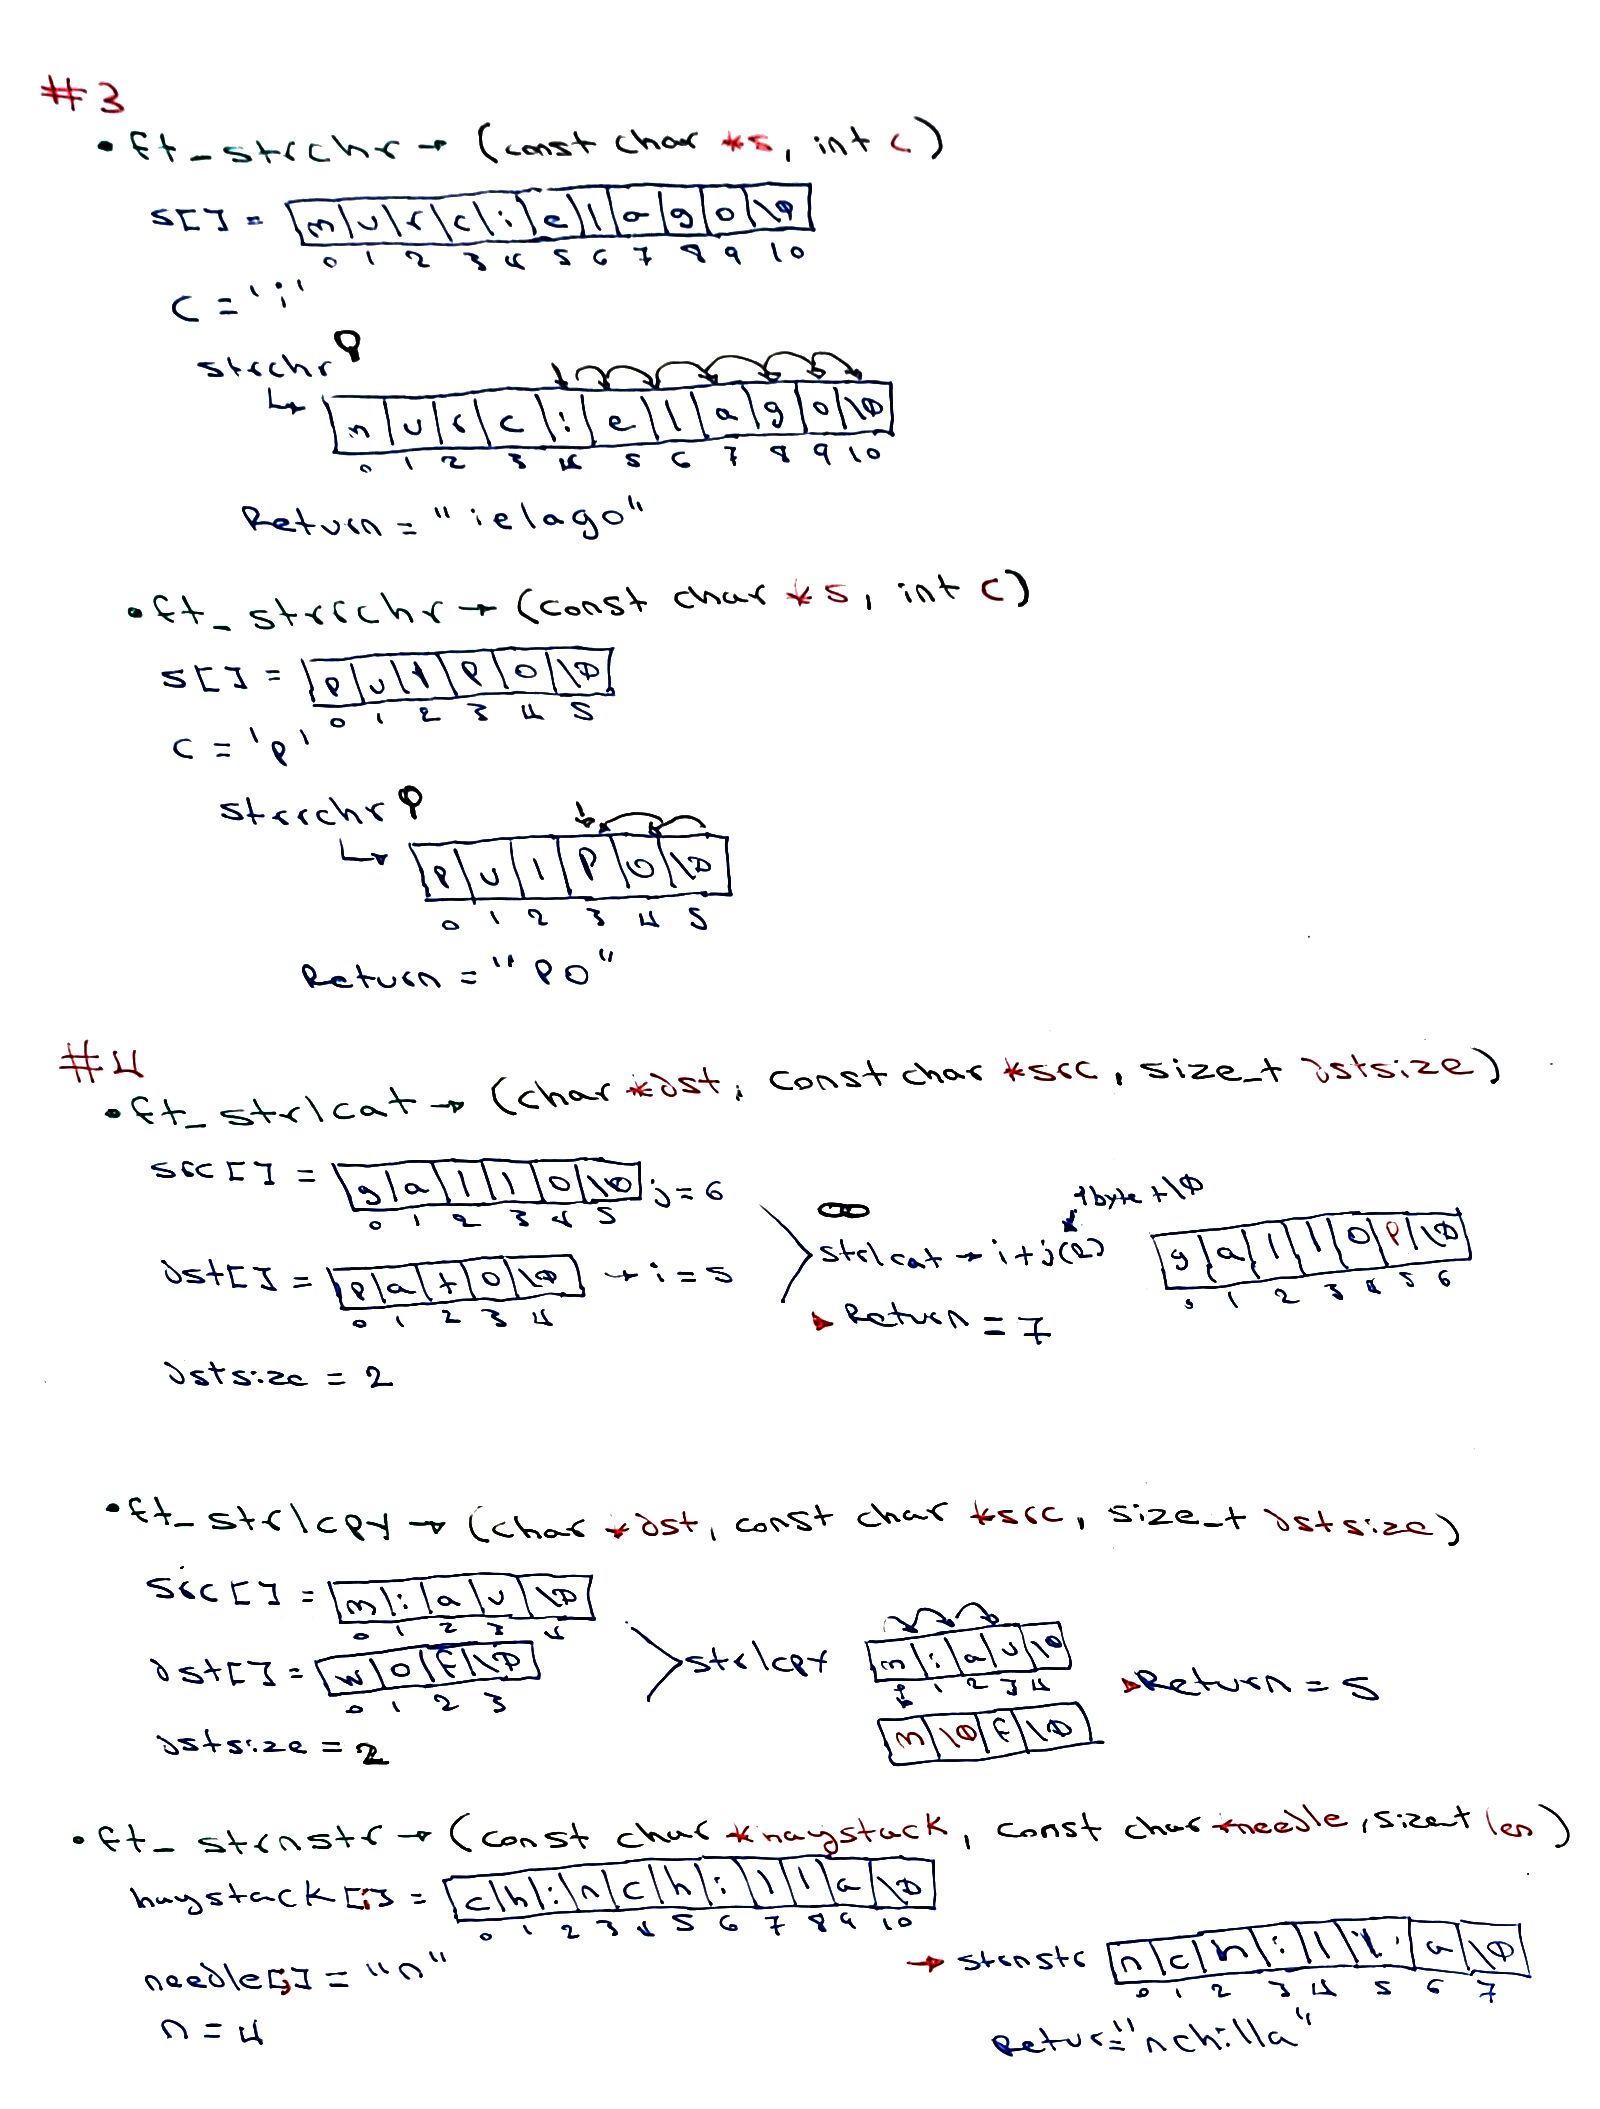 #3
• ft_strchr → (const char *s, int c)
s[] = m|u|r|c|i|e|l|a|g|o|\0
0 1 2 3 4 5 6 7 8 9 10
c = 'i'
strchr
↳ m|u|r|c|i|e|l|a|g|o|\0
0 1 2 3 4 5 6 7 8 9 10
Return = "ielago"
• ft_strrchr → (const char *s, int c)
s[] = p|u|l|p|o|\0
0 1 2 3 4 5
c = 'p'
strrchr
↳ p|u|l|p|o|\0
0 1 2 3 4 5
Return = "po"
#4
• ft_strlcat → (char *dst, const char *src, size_t dstsize)
src[] = g|a|l|l|o|\0 j=6
0 1 2 3 4 5
dst[] = p|a|t|o|\0 → i=5
0 1 2 3 4
dstsize = 2
1byte+\0
strlcat → i+j(2)
g|a|l|l|o|p|\0
0 1 2 3 4 5 6
Return = 7
• ft_strlcpy → (char *dst, const char *src, size_t dstsize)
src[] = m|i|a|u|\0
0 1 2 3 4
dst[] = w|o|f|\0
0 1 2 3
dstsize = 2
strlcpy
m|i|a|u|\0
1 2 3 4
m|\0|f|\0
Return = 5
• ft_strnstr → (const char *haystack, const char *needle, size_t len)
haystack[i] = c|h|i|n|c|h|i|l|l|a|\0
0 1 2 3 4 5 6 7 8 9 10
needle[j] = "n"
n = 4
→ strnstr n|c|h|i|l|l|a|\0
0 1 2 3 4 5 6 7
Retur="nchilla"